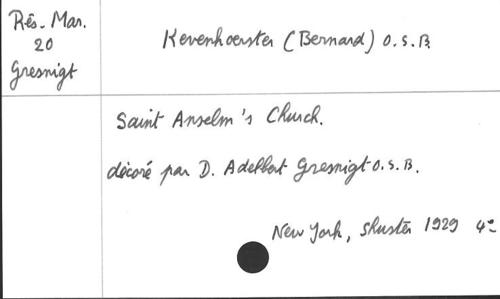 Rés. Mar.
20
Gresnigt
Kevenhoerster (Bernard) O.S.B.
Saint Anselm's Church.
décoré par D. Adelbert Gresnigt O.S.B.
New York, Shuster 1929 4°